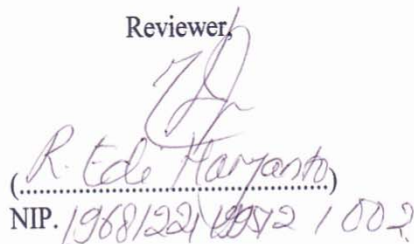 Reviewer,
(R. Ede Haryanto)
NIP. 19681221 1 002